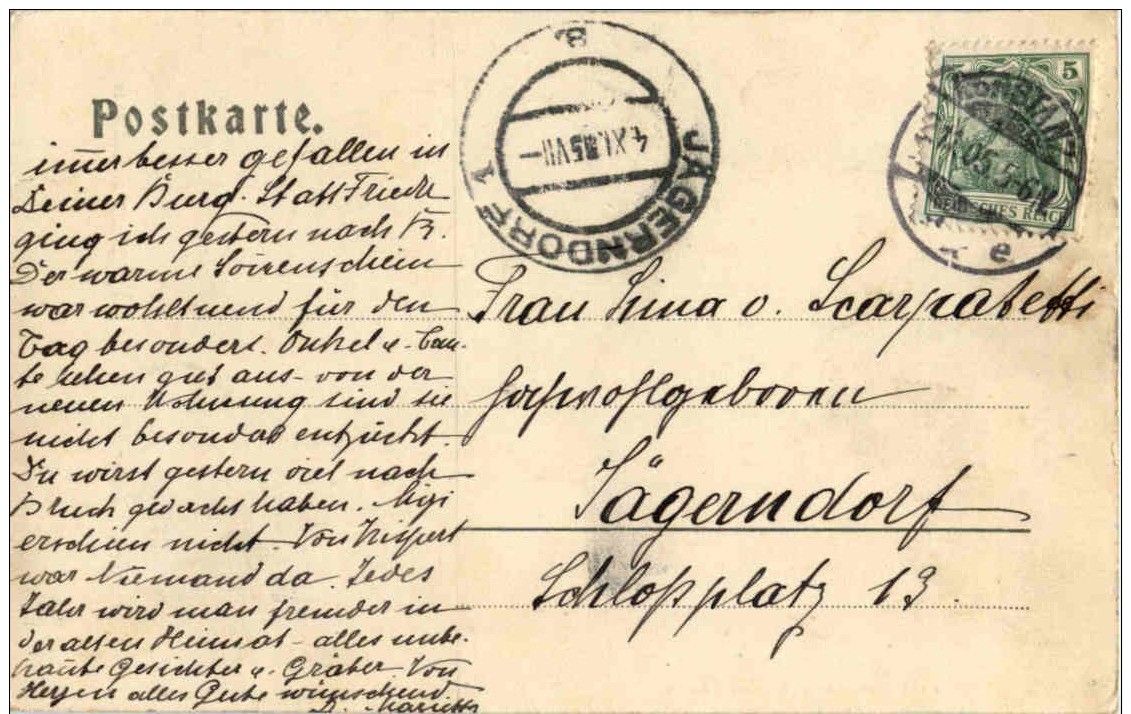 Postkarte.
immer besser gefallen in
Deiner Burg. Statt Friedr.
ging ich gestern nach Kr.
Der warme Sonnenschein
war wohltuend für den
Tag besonders. Onkel u. Tan-
te sehen gut aus - von der
neuen Wohnung sind sie
nicht besonders entzückt.
Du wirst gestern viel nach
gedacht haben.
erschien nicht. Von
war Niemand da. Jedes
Jahr wird man fremder in
der alten Heimat - alles unbe-
kannte Gesichter u. Gräber. Von
Herzen alles Gute wünschend
D. Marietta
JÄGERNDORF 1
4.XI.05 VII-
8
KONSTANZ
.11.05.5-6N.
e
5
DEUTSCHES REICH
Frau Lina v. Scarpatetti
Hochwohlgeboren
Jägerndorf
Schloßplatz 13.